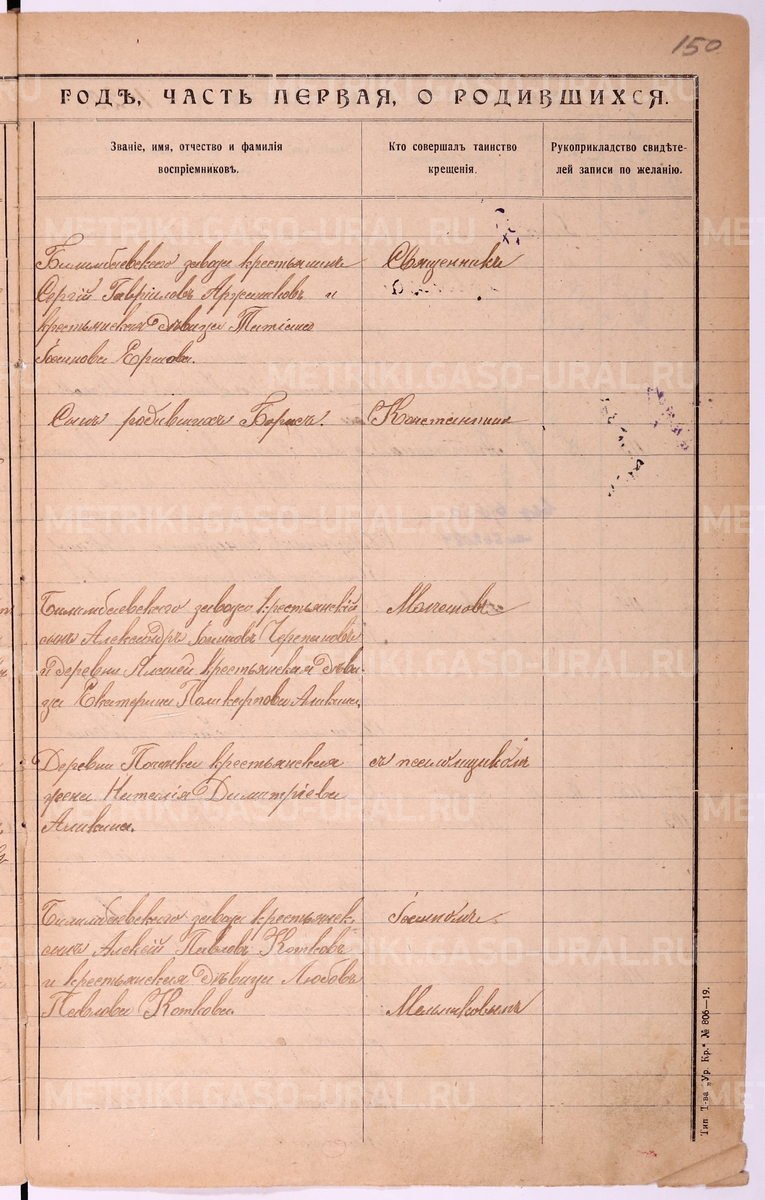 150
ГОДЪ, ЧАСТЬ ПЕРВАЯ, О РОДИВШИХСЯ.
Званіе, имя, отчество и фамилія
воспріемниковъ.
Кто совершалъ таинство
крещенія.
Рукоприкладство свидѣте-
лей записи по желанію.
Билимбаевскаго завода крестьянинъ
Сергій Гавріиловъ и
крестьянская дѣвица Татіана
Іоаннова Ершова.
Священникъ
Сынъ родившихъ Борисъ.
Константинъ
Билимбаевскаго завода крестьянскій
сынъ Александръ Іоанновъ Черепановъ
и деревни крестьянская дѣви-
ца Екатерина Поликарпова Аликина.
Деревни крестьянская
жена Наталія Димитріева
Аликина.
съ псаломщикомъ
Билимбаевскаго завода крестьянск.
сынъ Алексѣй Павловъ Котковъ
и крестьянская дѣвица Любовь
Павлова Коткова.
Іоанномъ
Мельниковымъ
Тип. Т-ва „Ур. Кр.“ № 806—19.
METRIKI.GASO-URAL.RU